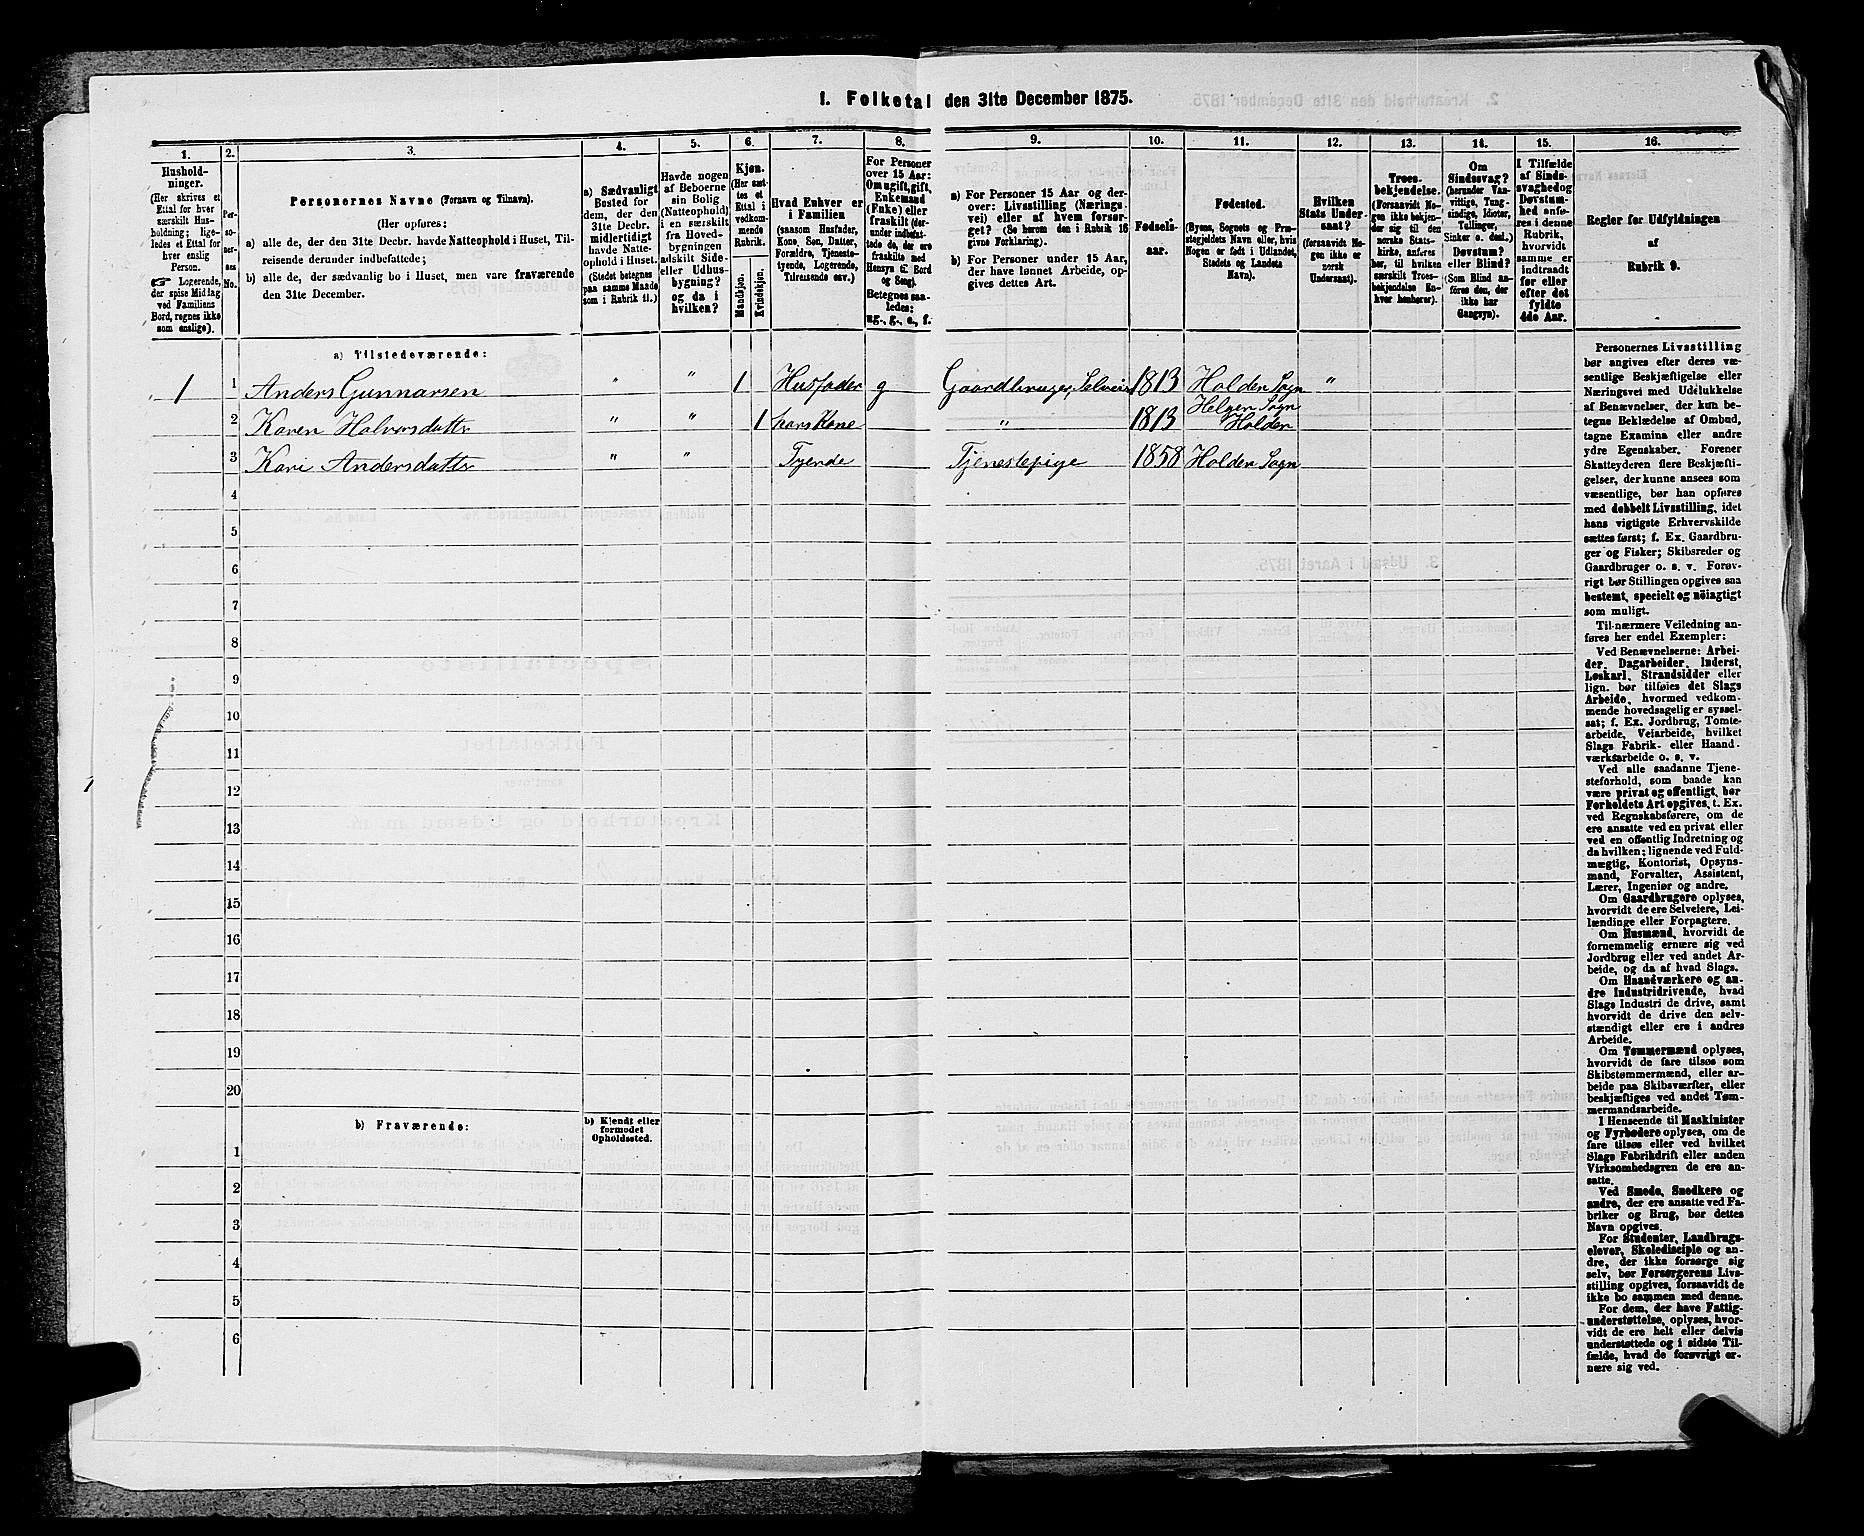 1. Folketal den 31te December 1875.
1.
Hushold-
ninger.
(Her skrives et
Ettal for hver
særskilt Hus-
holdning; lige-
ledes et Ettal for
hver enslig
Person.
Logerende,
der spise Middag
ved Familiens
Bord, regnes ikke
som enslige).
2.
Per-
so-
ner-
nes
No.
3.
Personernes Navne (Fornavn og Tilnavn).
(Her opføres:
a) alle de, der den 31te Decbr. havde Natteophold i Huset, Til-
reisende derunder indbefattede;
b) alle de, der sædvanlig bo i Huset, men vare fraværende
den 31te December.
4.
a) Sædvanligt
Bosted for
dem, der den
31te Decbr.
midlertidigt
havde Natte-
ophold i Huset.
(Stedet betegnes
paa samme Maade
som i Rubrik 11.)
5.
Havde nogen
af Beboerne
sin Bolig
(Natteophold)
i en særskilt
fra Hoved-
bygningen
adskilt Side-
eller Udhus-
bygning?
og da i
hvilken?
6.
Kjøn.
(Her sæt-
tes et
Ettal i
vedkom-
mende
Rubrik.
Mandkjøn.
Kvindekjøn.
7.
Hvad Enhver er
i Familien
(saasom Husfader,
Kone, Søn, Datter,
Forældre, Tjeneste-
tyende, Logerende,
Tilreisende osv.)
8.
For Personer
over 15 Aar:
Om ugift, gift,
Enkemand
(Enke) eller
fraskilt (der-
under indbefat-
tede de, der ere
fraskilte med
Hensyn til Bord
og Seng).
Betegnes saa-
ledes:
ug., g., e., f.
9.
a) For Personer 15 Aar og der-
over: Livsstilling (Nærings-
vei) eller af hvem forsør-
get? (Se herom den i Rubrik 16
givne Forklaring).
b) For Personer under 15 Aar,
der have lønnet Arbeide, op-
gives dettes Art.
10.
Fødsels-
aar.
11.
Fødested.
(Byens, Sognets og Præ-
stegjeldets Navn eller, hvis
Nogen er født i Udlandet,
Stedets og Landets
Navn).
12.
Hvilken
Stats Under-
saat?
(forsaavidt No-
gen ikke er
norsk
Undersaat).
13.
Troes-
bekjendelse.
(Forsaavidt No-
gen ikke bekjen-
der sig til den
norske Stats-
kirke, anføres
her, til hvilken
særskilt Troes-
bekjendelse En-
hver henhører).
14.
Om
Sindssvag?
(herunder Van-
vittige, Tung-
sindige, Idioter,
Tullinger,
Sinker o. desl.)
Døvstum?
eller Blind?
(Som Blind an-
føres den, der
ikke har
Gangsyn).
15.
I Tilfælde
af Sinds-
svaghed og
Døvstum-
hed anfø-
res i denne
Rubrik,
hvorvidt
samme er
indtraadt
før eller
efter det
fyldte
4de Aar.
16.
Regler for Udfyldningen
af
Rubrik 9.
a) Tilstedeværende:
1 1 Anders Gunnarsen " " 1 Husfader g Gaardbruger, Selveier 1813 Holden Sogn "
2 Karen Halvorsdattr " " 1 hans Kone " 1813 Helgen Sogn Holden
3 Kari Andersdattr " " Tyende Tjenestepige 1858 Holden Sogn
4
5
6
7
8
9
10
11
12
13
14
15
16
17
18
19
20
b) Fraværende:
b) Kjendt eller
formodet
Opholdssted.
1
2
3
4
5
6
Personernes Livsstilling
bør angives efter deres væ-
sentlige Beskjæftigelse eller
Næringsvei med Udelukkelse
af Benævnelser, der kun be-
tegne Beklædelse af Ombud,
tagne Examina eller andre
ydre Egenskaber. Forener
Skatteyderen flere Beskjæfti-
gelser, der kunne ansees som
væsentlige, bør han opføres
med dobbelt Livsstilling, idet
hans vigtigste Erhvervskilde
sættes først; f. Ex. Gaardbru-
ger og Fisker; Skibsreder og
Gaardbruger o. s. v. Forøv-
rigt bør Stillingen opgives saa
bestemt, specielt og nöiagtigt
som muligt.
Til nærmere Veiledning an-
føres her endel Exempler:
Ved Benævnelserne: Arbei-
der, Dagarbeider, Inderst,
Løskarl, Strandsidder eller
lign. bør tilføies det Slags
Arbeide, hvormed vedkom-
mende hovedsagelig er syssel-
sat; f. Ex. Jordbrug, Tomte-
arbeide, Veiarbeide, hvilket
Slags Fabrik- eller Haand-
værksarbeide o. s. v.
Ved alle saadanne Tjene-
steforhold, som baade kan
være privat og offentligt, bør
Forholdets Art opgives, t. Ex.
ved Regnskabsførere, om de
ere ansatte ved en privat eller
ved en offentlig Indretning og
da hvilken; lignende ved Fuld-
mægtig, Kontorist, Opsyns-
mand, Forvalter, Assistent,
Lærer, Ingeniør og andre.
Om Gaardbrugere oplyses,
hvorvidt de ere Selveiere, Lei-
lændinge eller Forpagtere.
Om Husmænd, hvorvidt de
fornemmelig ernære sig ved
Jordbrug eller ved andet Ar-
beide, og da af hvad Slags.
Om Haandværkere og an-
dre industridrivende, hvad
Slags Industri de drive, samt
hvorvidt de drive den selv-
stændigt eller ere i andres
Arbeide.
Om Tømmermænd oplyses,
hvorvidt de fare tilsøs som
Skibstømmermænd, eller ar-
beide paa Skibsværfter, eller
beskjæftiges ved andet Tøm-
mermandsarbeide.
I Henseende til Maskinister
og Fyrbødere oplyses, om de
fare tilsøs eller ved hvilket
Slags Fabrikdrift eller anden
Virksomhedsgren de ere an-
satte.
Ved Smede, Snedkere og
andre, der ere ansatte ved Fa-
briker og Brug, bør dettes
Navn opgives.
For Studenter, Landbrugs-
elever, Skoledisciple og an-
dre, der ikke forsørge sig
selv, bør Forsørgerens Livs-
stilling opgives, forsaavidt de
ikke bo sammen med denne.
For dem, der have Fattig-
understøttelse, oplyses, hvor-
vidt de ere helt eller delvis
understøttede og i sidste Til-
fælde, hvad de forøvrigt er-
nære sig ved.